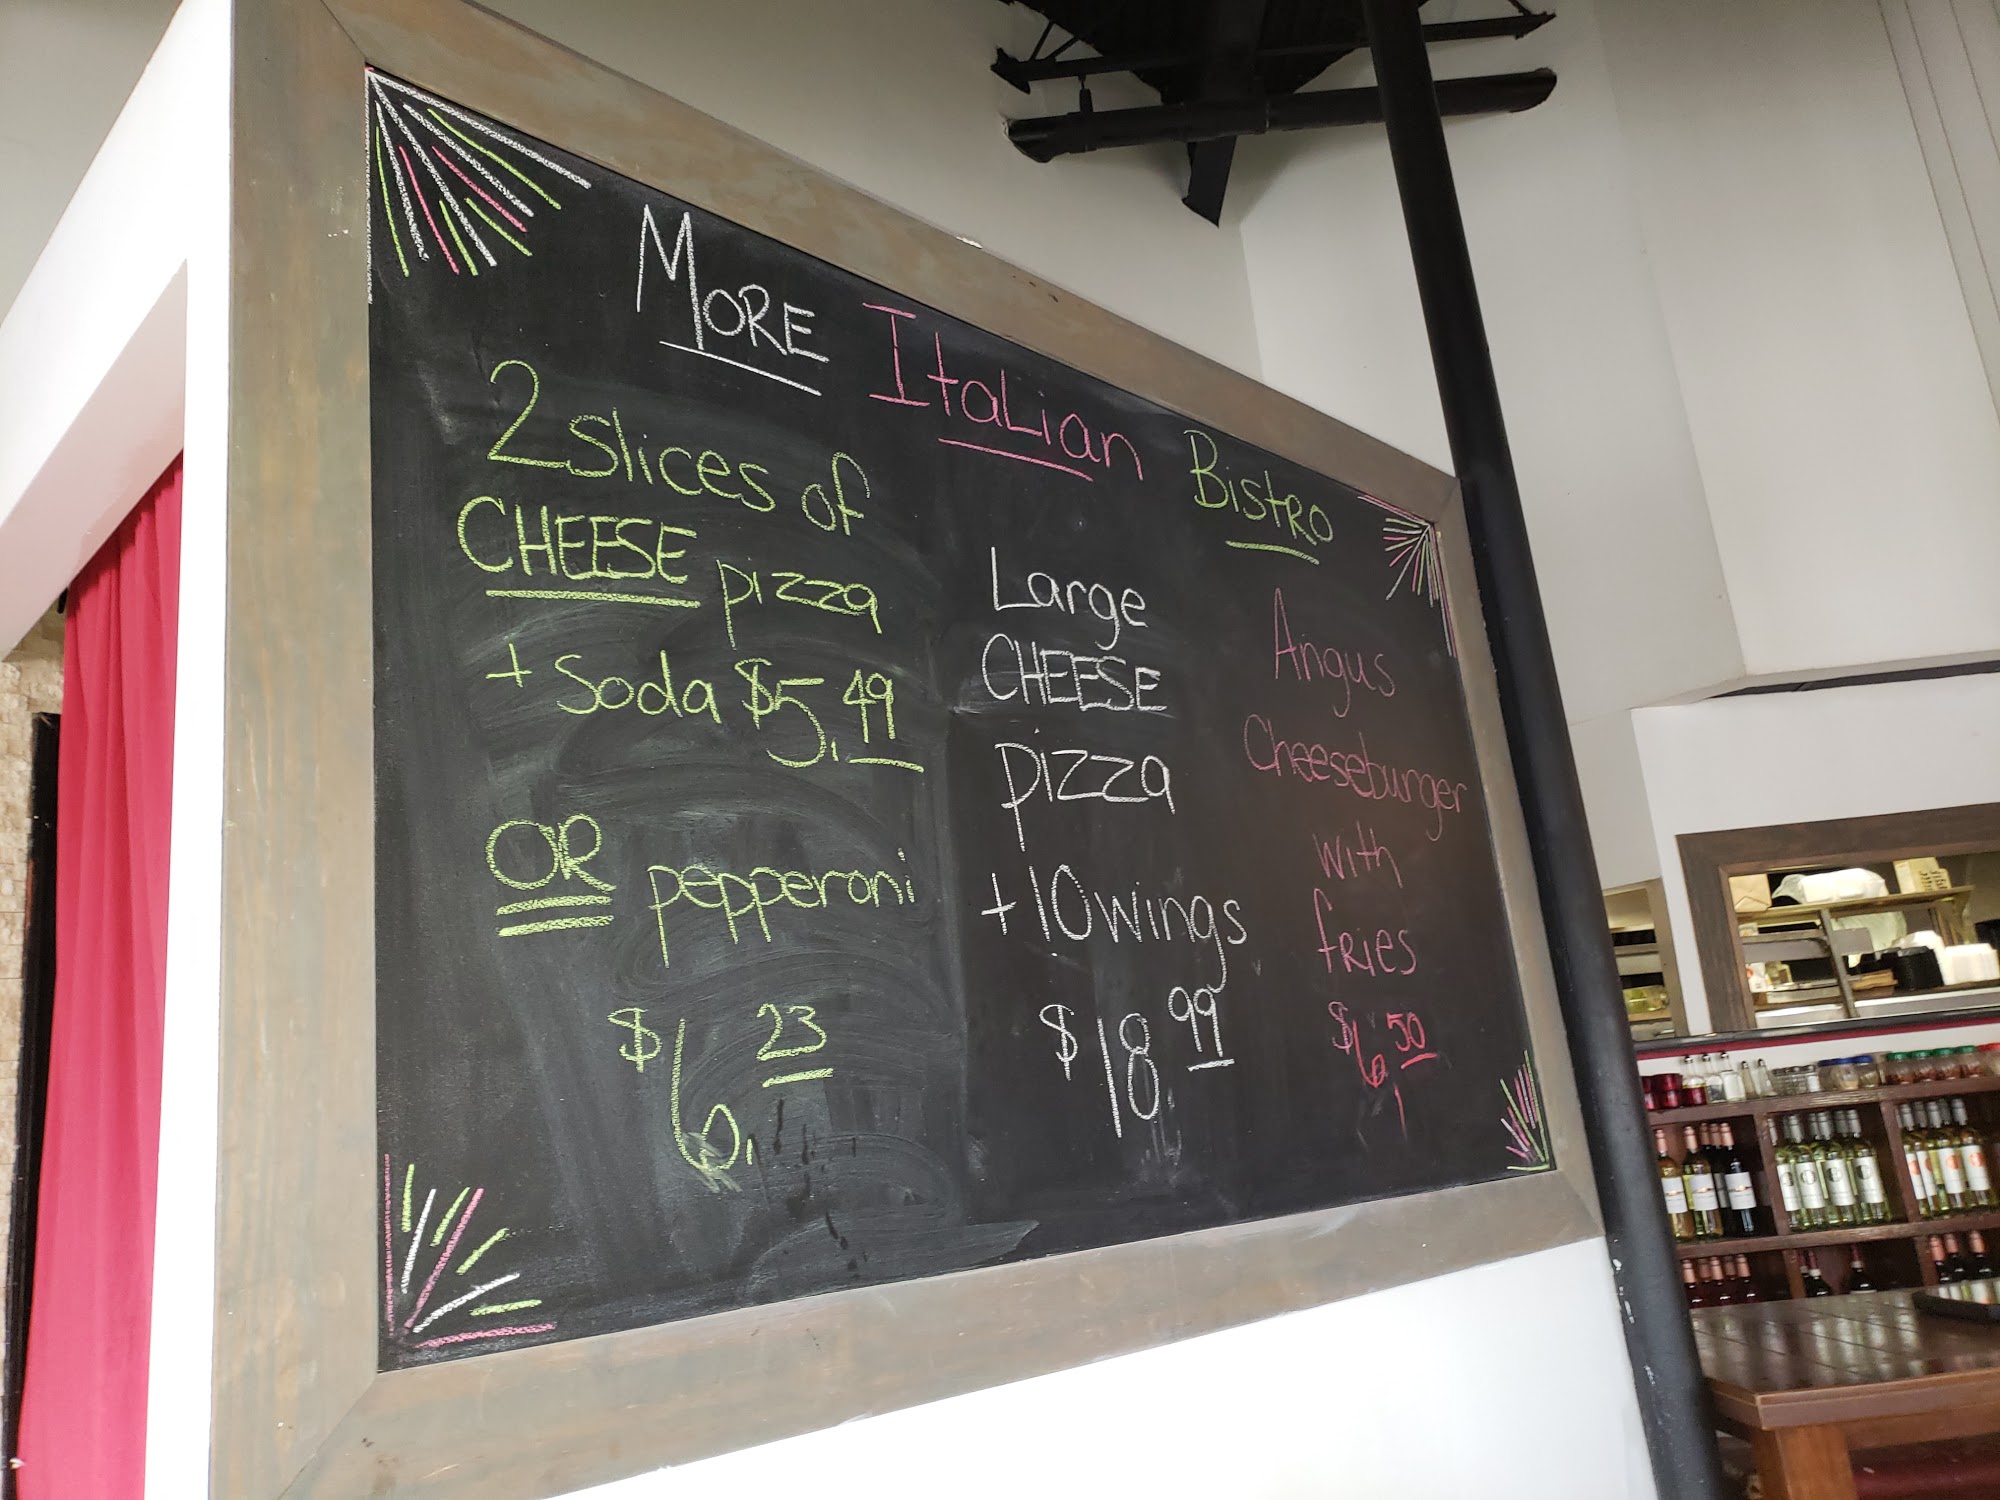 MORE Italian Bistro
2 slices of
CHEESE pizza
+ Soda $5.49
OR pepperoni
$6.23
Large
CHEESE
pizza
+ 10 wings
$18 99
Angus
Cheeseburger
with
fries
$6 50